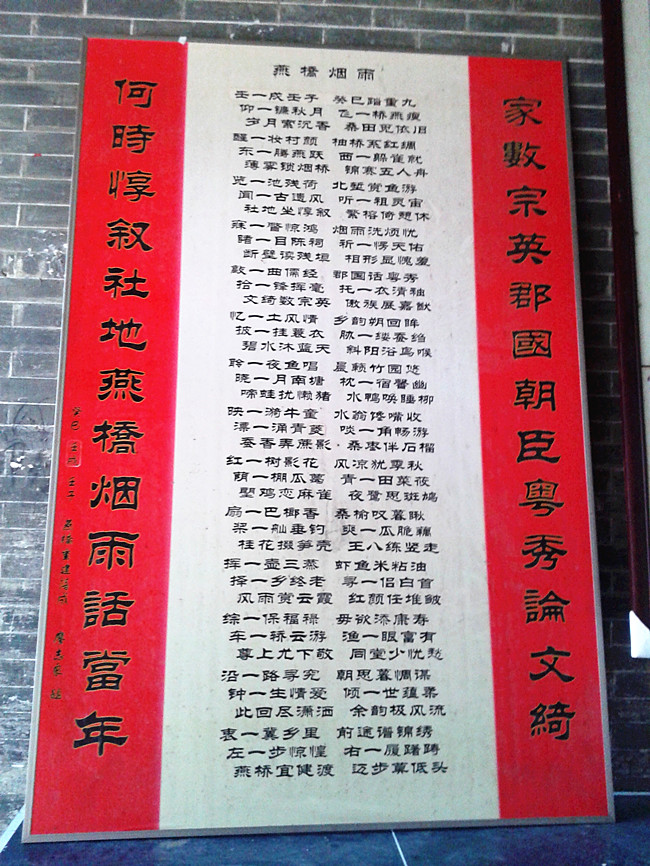 家數宗英郡國朝臣粤秀論文綺
燕橋烟雨
壬一成壬子 癸巳踏重九
仰一镰秋月 飞一桥燕瘦
岁月窖沉香 桑田觅依旧
醒一妆村颜 柚桥系红绸
东一腾燕跃 西一躲雀就
薄雾锁烟桥 锦寨五人舟
览一池残荷 北堑赏鱼游
闻一古遗风 听一祖灵宙
社地坐惇叙 繁榕倚憩休
寐一瞥惊鸿 烟雨洗烦忧
睹一目陈祠 祈一愣天佑
断壁读残垣 相形显愧羞
敲一曲儒经 郡国话粤秀
拾一锋挥毫 托一衣清秞
文绮数宗英 傲族展嘉猷
忆一土风情 乡韵朔回眸
披一挂蓑衣 胁一绥蚕绉
碧水沐蓝天 斜阳浴鸟喉
聆一夜鱼唱 晨赖竹园悠
晓一月南塘 枕一宿馨幽
啼蛙扰懒猪 水鸭唤睡柳
映一漪牛童 水翁馋嘴收
漂一涌青菱 啖一角畅游
蚕香弄蔗影 桑枣伴石榴
红一树影花 风凉犹覃秋
荫一棚瓜蔓 青一田菜莜
墅鸡恋麻雀 夜鹭思斑鸠
扇一巴椰香 桑榆叹暮瞅
桨一舢垂钓 爽一瓜脆藕
桂花掇笋壳 王八练竖走
挥一壶三蒸 虾鱼米粘油
择一乡终老 寻一侣白首
风雨赏云霞 红颜任堆皱
综一保福禄 毋欲添康寿
车一轿云游 渔一眼富有
尊上尤下敬 同堂少忧愁
沿一路寻宠 朝思暮惆谋
钟一生情爱 倾一世蕴柔
此回尽潇洒 余韵极风流
衷一冀乡里 前途谱锦绣
左一步惊惶 右一履踌躇
燕桥宜健渡 迈步冀低头
何時惇叙社地燕橋烟雨話當年
癸巳